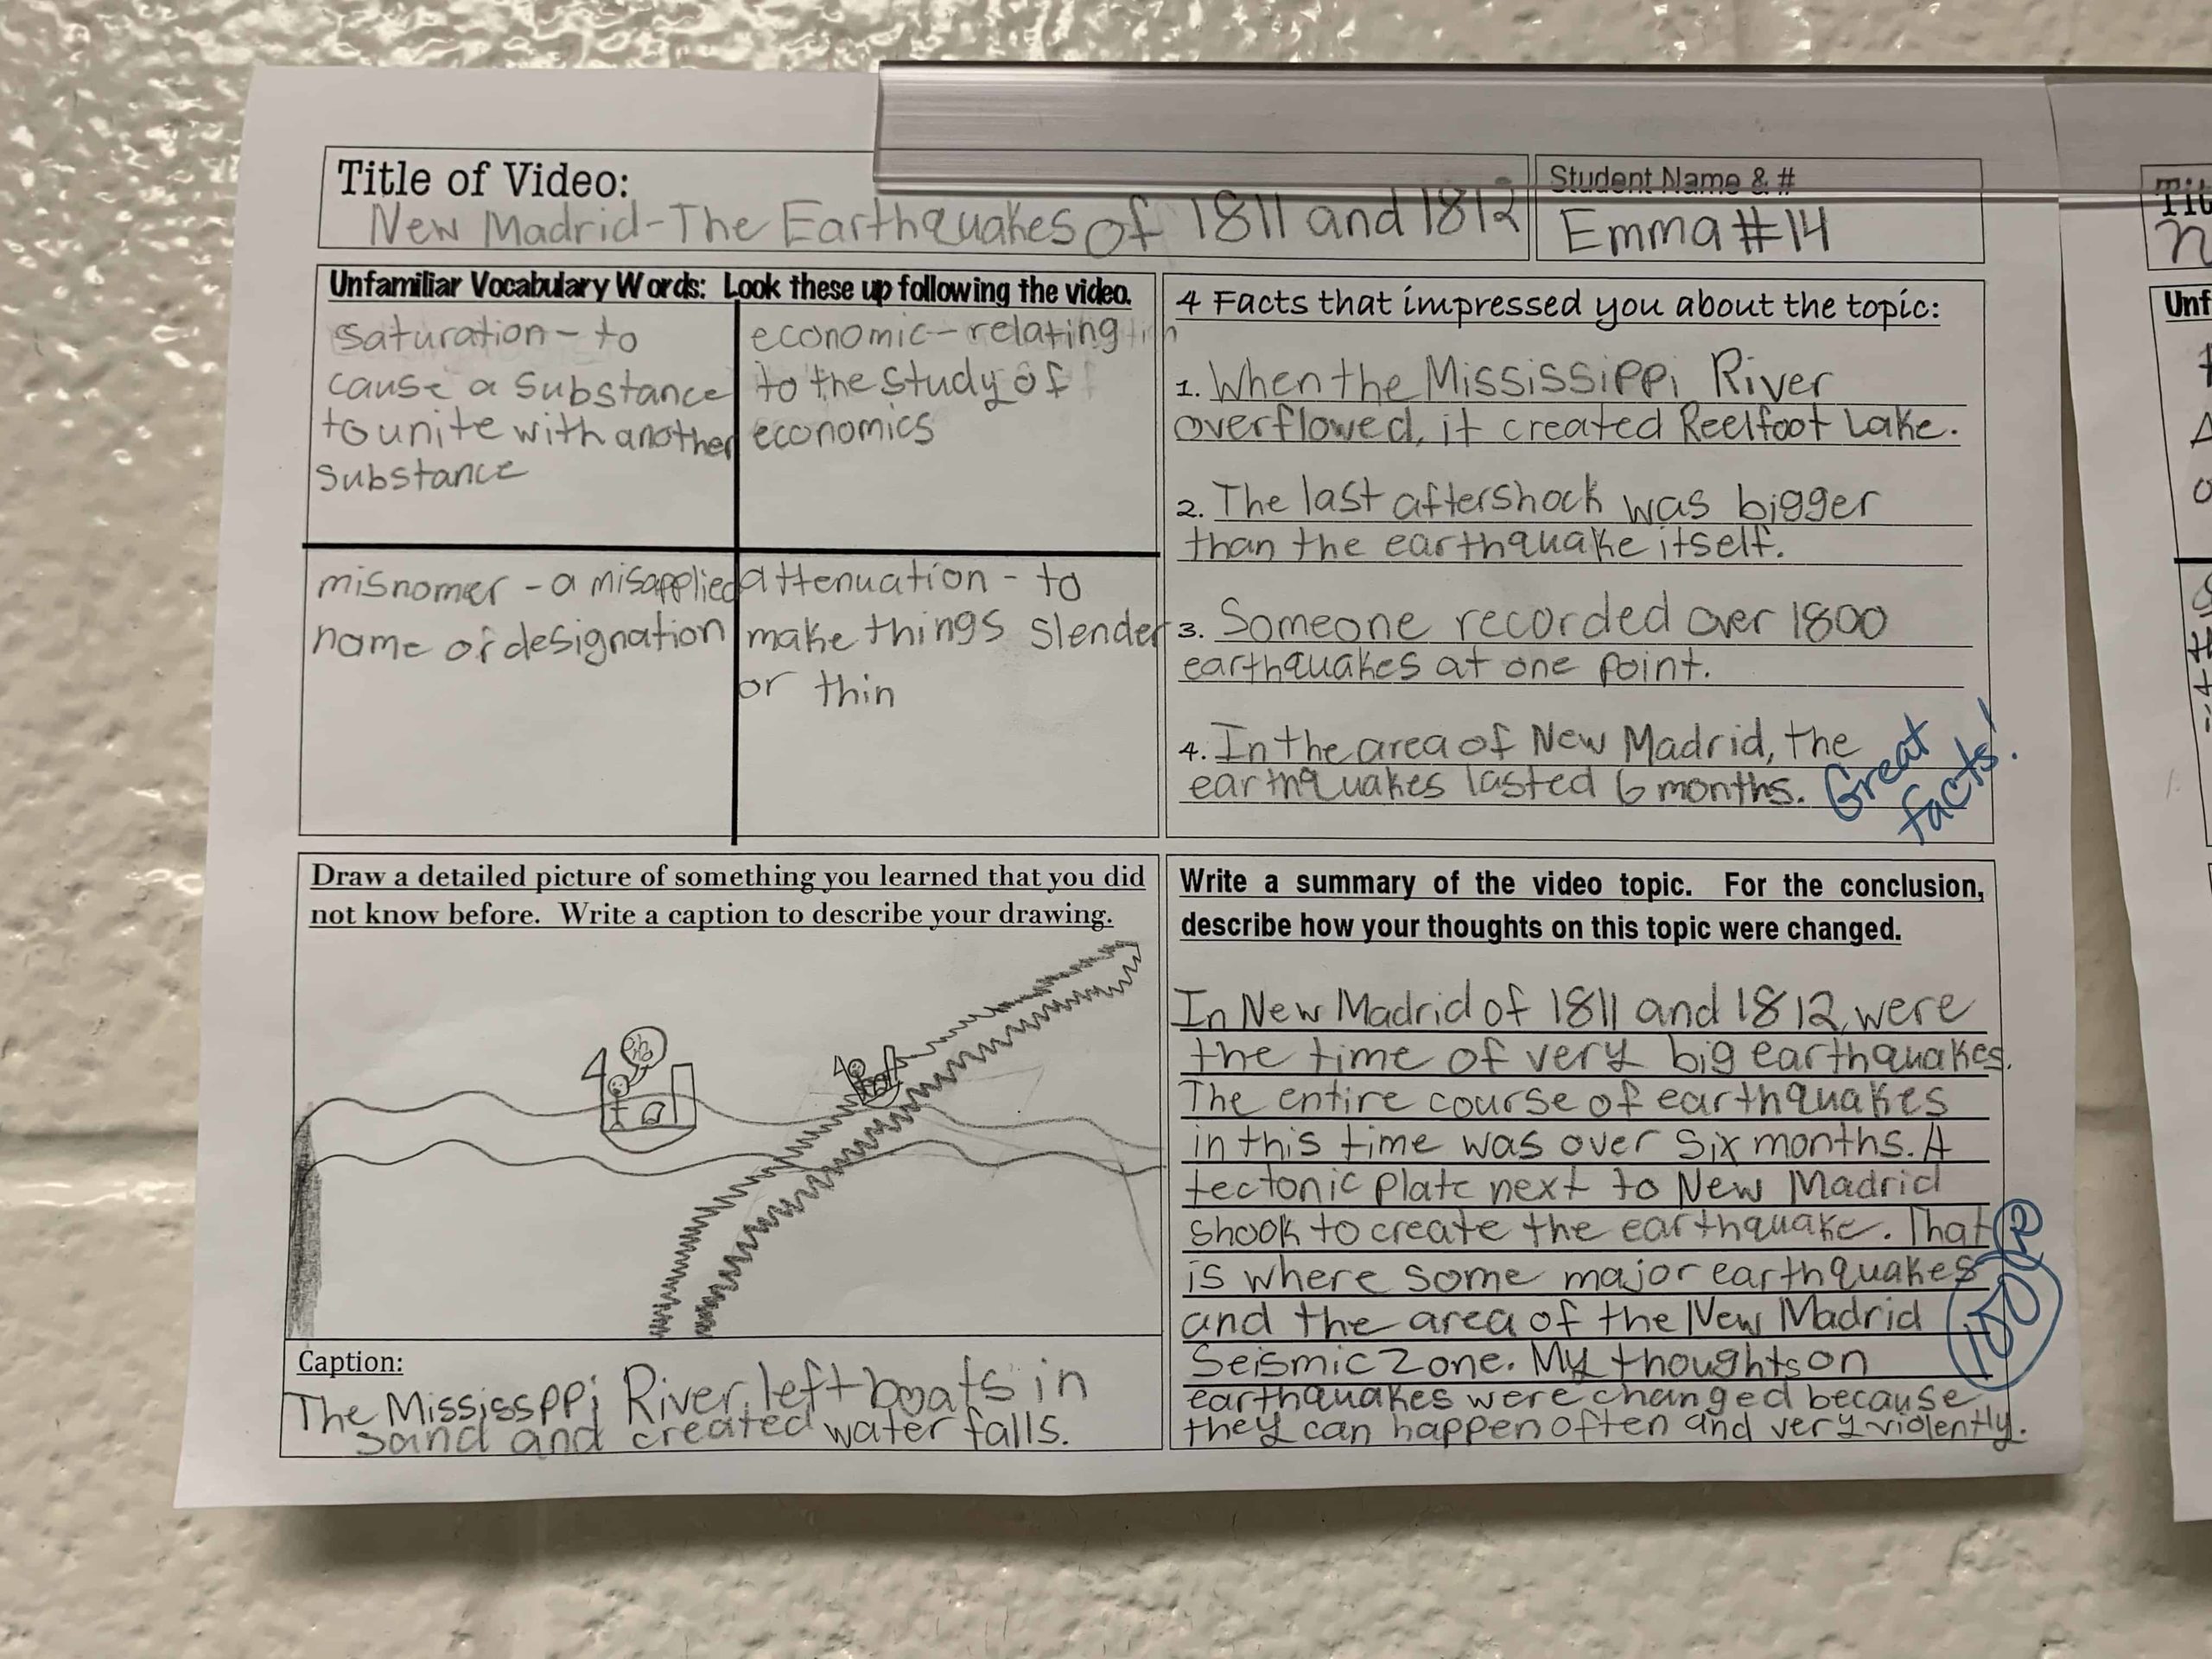 Title of Video:
New Madrid-The Earthquakes of 1811 and 1812
Student Name & #
Emma #14
Unfamiliar Vocabulary Words: Look these up following the video.
saturation - to
cause a substance
to unite with another
substance
economic - relating
to the study of
economics
misnomer - a misapplied
name or designation
attenuation - to
make things slender
or thin
4 Facts that impressed you about the topic:
1. When the Mississippi River
overflowed, it created Reelfoot Lake.
2. The last aftershock was bigger
than the earthquake itself.
3. Someone recorded over 1800
earthquakes at one point.
4. In the area of New Madrid, the
earthquakes lasted 6 months.
Great
facts!
Draw a detailed picture of something you learned that you did
not know before. Write a caption to describe your drawing.
Caption:
The Mississppi River left boats in
sand and created water falls.
Write a summary of the video topic. For the conclusion,
describe how your thoughts on this topic were changed.
In New Madrid of 1811 and 1812, were
the time of very big earthquakes.
The entire course of earthquakes
in this time was over six months. A
tectonic plate next to New Madrid
shook to create the earthquake. That
is where some major earthquakes
and the area of the New Madrid
Seismic Zone. My thoughts on
earthquakes were changed because
they can happen often and very violently.
100
Tit
Unf